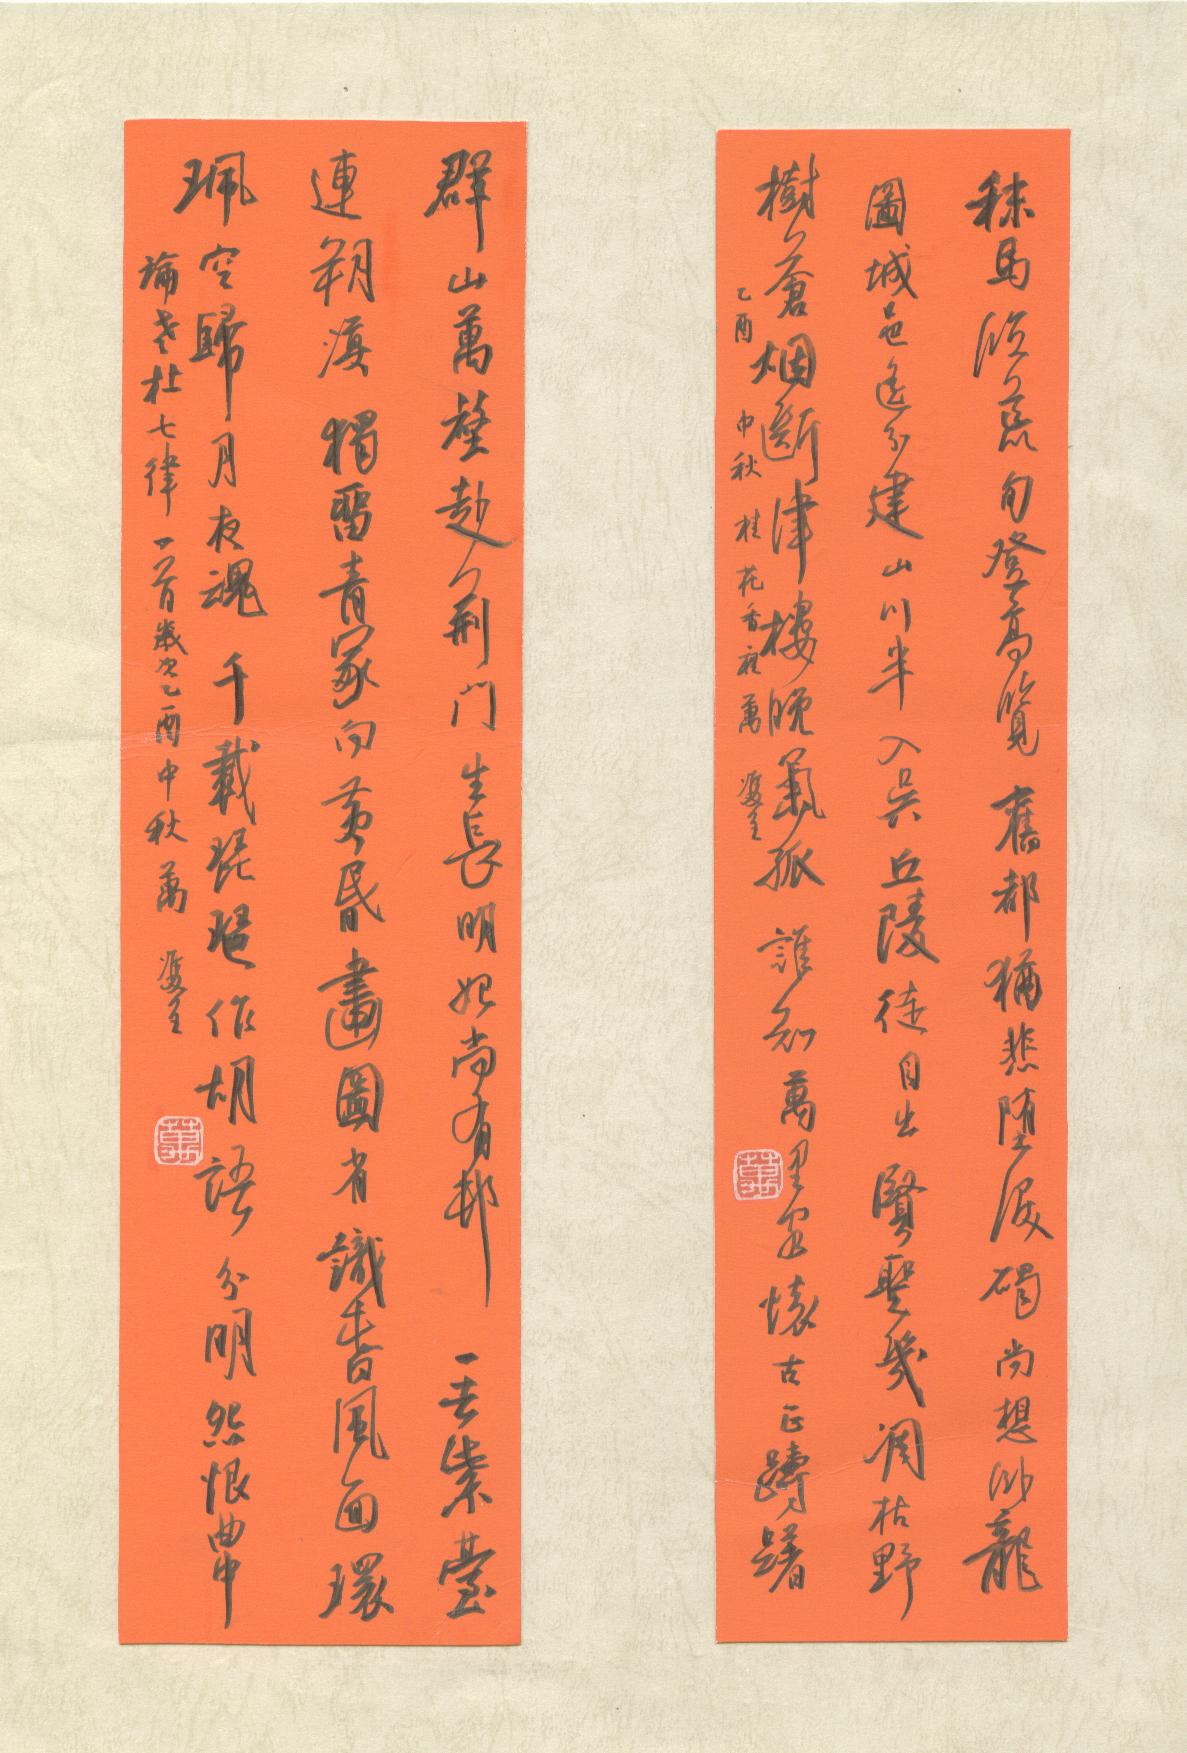 秣馬臨荒甸登高覽舊都猶悲墮淚碣尚想卧龍
圖城邑遙分建山川半入吳丘陵徒自出賢聖幾凋枯野
樹蒼烟斷津樓晚氣孤誰知萬里客懷古正躊躇
乙酉中秋桂花香裡萬
群山萬壑赴荆門生長明妃尚有邨一去紫臺
連朔漠獨留青冢向黃昏畫圖省識春風面環
珮空歸月夜魂千載琵琶作胡語分明怨恨曲中
論老杜七律一首歲次乙酉中秋萬